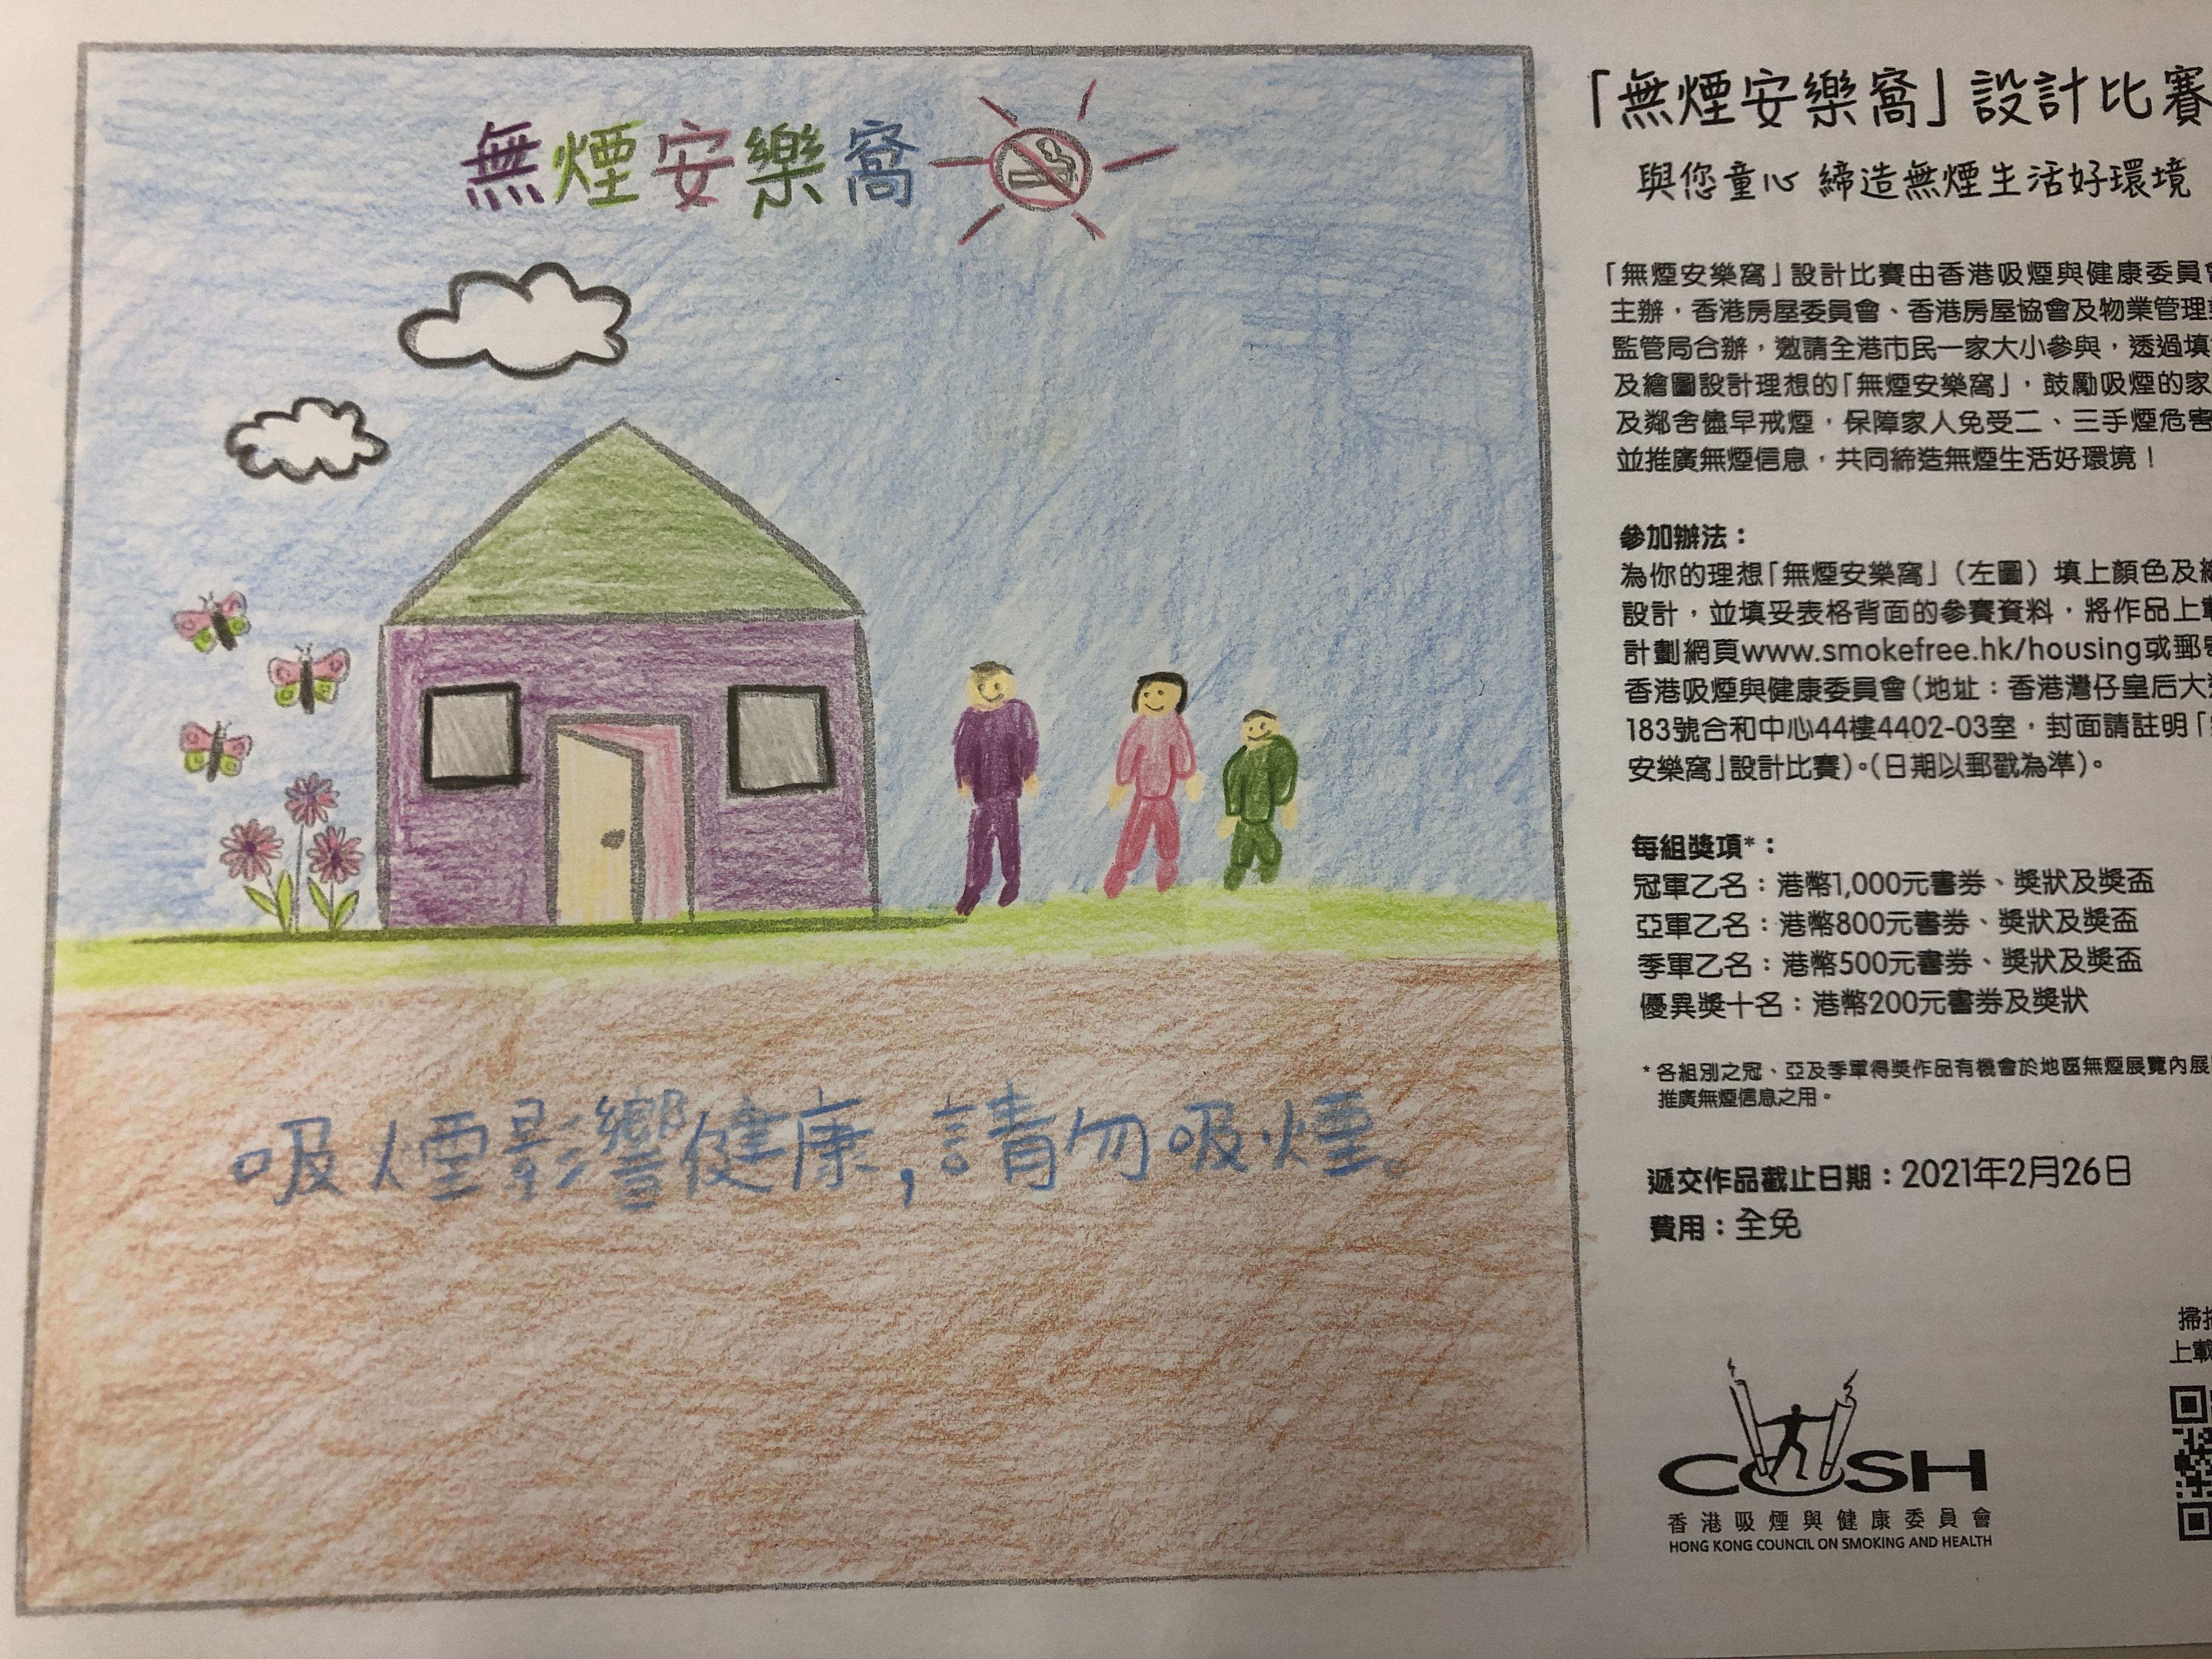 無煙安樂窩
吸煙影響健康,請勿吸煙。
「無煙安樂窩」設計比賽
與您童心 締造無煙生活好環境
「無煙安樂窩」設計比賽由香港吸煙與健康委員
主辦，香港房屋委員會、香港房屋協會及物業管理
監管局合辦，邀請全港市民一家大小參與，透過填
及繪圖設計理想的「無煙安樂窩」，鼓勵吸煙的家
及鄰舍儘早戒煙，保障家人免受二、三手煙危害
並推廣無煙信息，共同締造無煙生活好環境！
參加辦法：
為你的理想「無煙安樂窩」（左圖）填上顏色及
設計，並填妥表格背面的參賽資料，將作品上載
計劃網頁www.smokefree.hk/housing或郵
香港吸煙與健康委員會（地址：香港灣仔皇后大
183號合和中心44樓4402-03室，封面請註明「
安樂窩」設計比賽）。（日期以郵戳為準）。
每組獎項*：
冠軍乙名：港幣1,000元書券、獎狀及獎盃
亞軍乙名：港幣800元書券、獎狀及獎盃
季軍乙名：港幣500元書券、獎狀及獎盃
優異獎十名：港幣200元書券及獎狀
*各組別之冠、亞及季軍得獎作品有機會於地區無煙展覽內展
推廣無煙信息之用。
遞交作品截止日期：2021年2月26日
費用：全免
掃
上載
COSH
香港吸煙與健康委員會
HONG KONG COUNCIL ON SMOKING AND HEALTH